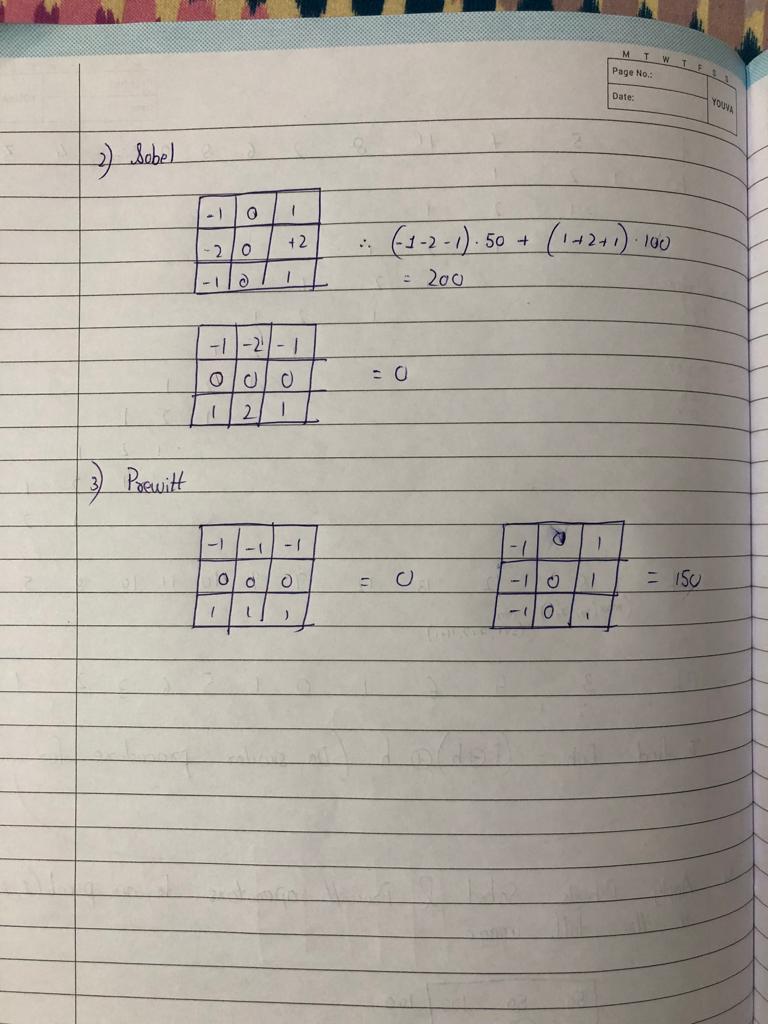 M T W T F S S
Page No.:
Date:
YOUVA
2) Sobel
-1 0 1
-2 0 +2 ∴ (-1-2-1)·50 + (1+2+1)·100
-1 0 1 = 200
-1 -2 -1
0 0 0 = 0
1 2 1
3) Prewitt
-1 -1 -1 -1 0 1
0 0 0 = 0 -1 0 1 = 150
1 1 1 -1 0 1